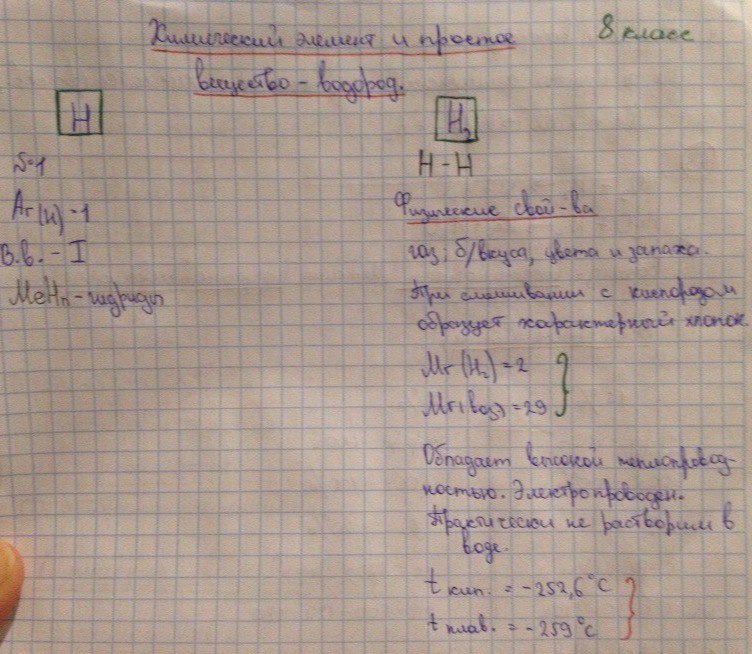 Химический элемент и простое
8 класс
вещество - водород.
H
№1
Ar(H) -1
В.в. - I
MeHn - гидриды
H2
H - H
Физические свой-ва
газ, б/вкуса, цвета и запаха.
При смешивании с кислородом
образует характерный хлопок
Mr (H2) = 2
Mr(возд) = 29
Обладает высокой теплопровод-
ностью. Электропроводен.
Практически не растворим в
воде.
t кип. = -252,6°C
t плав. = -259°C